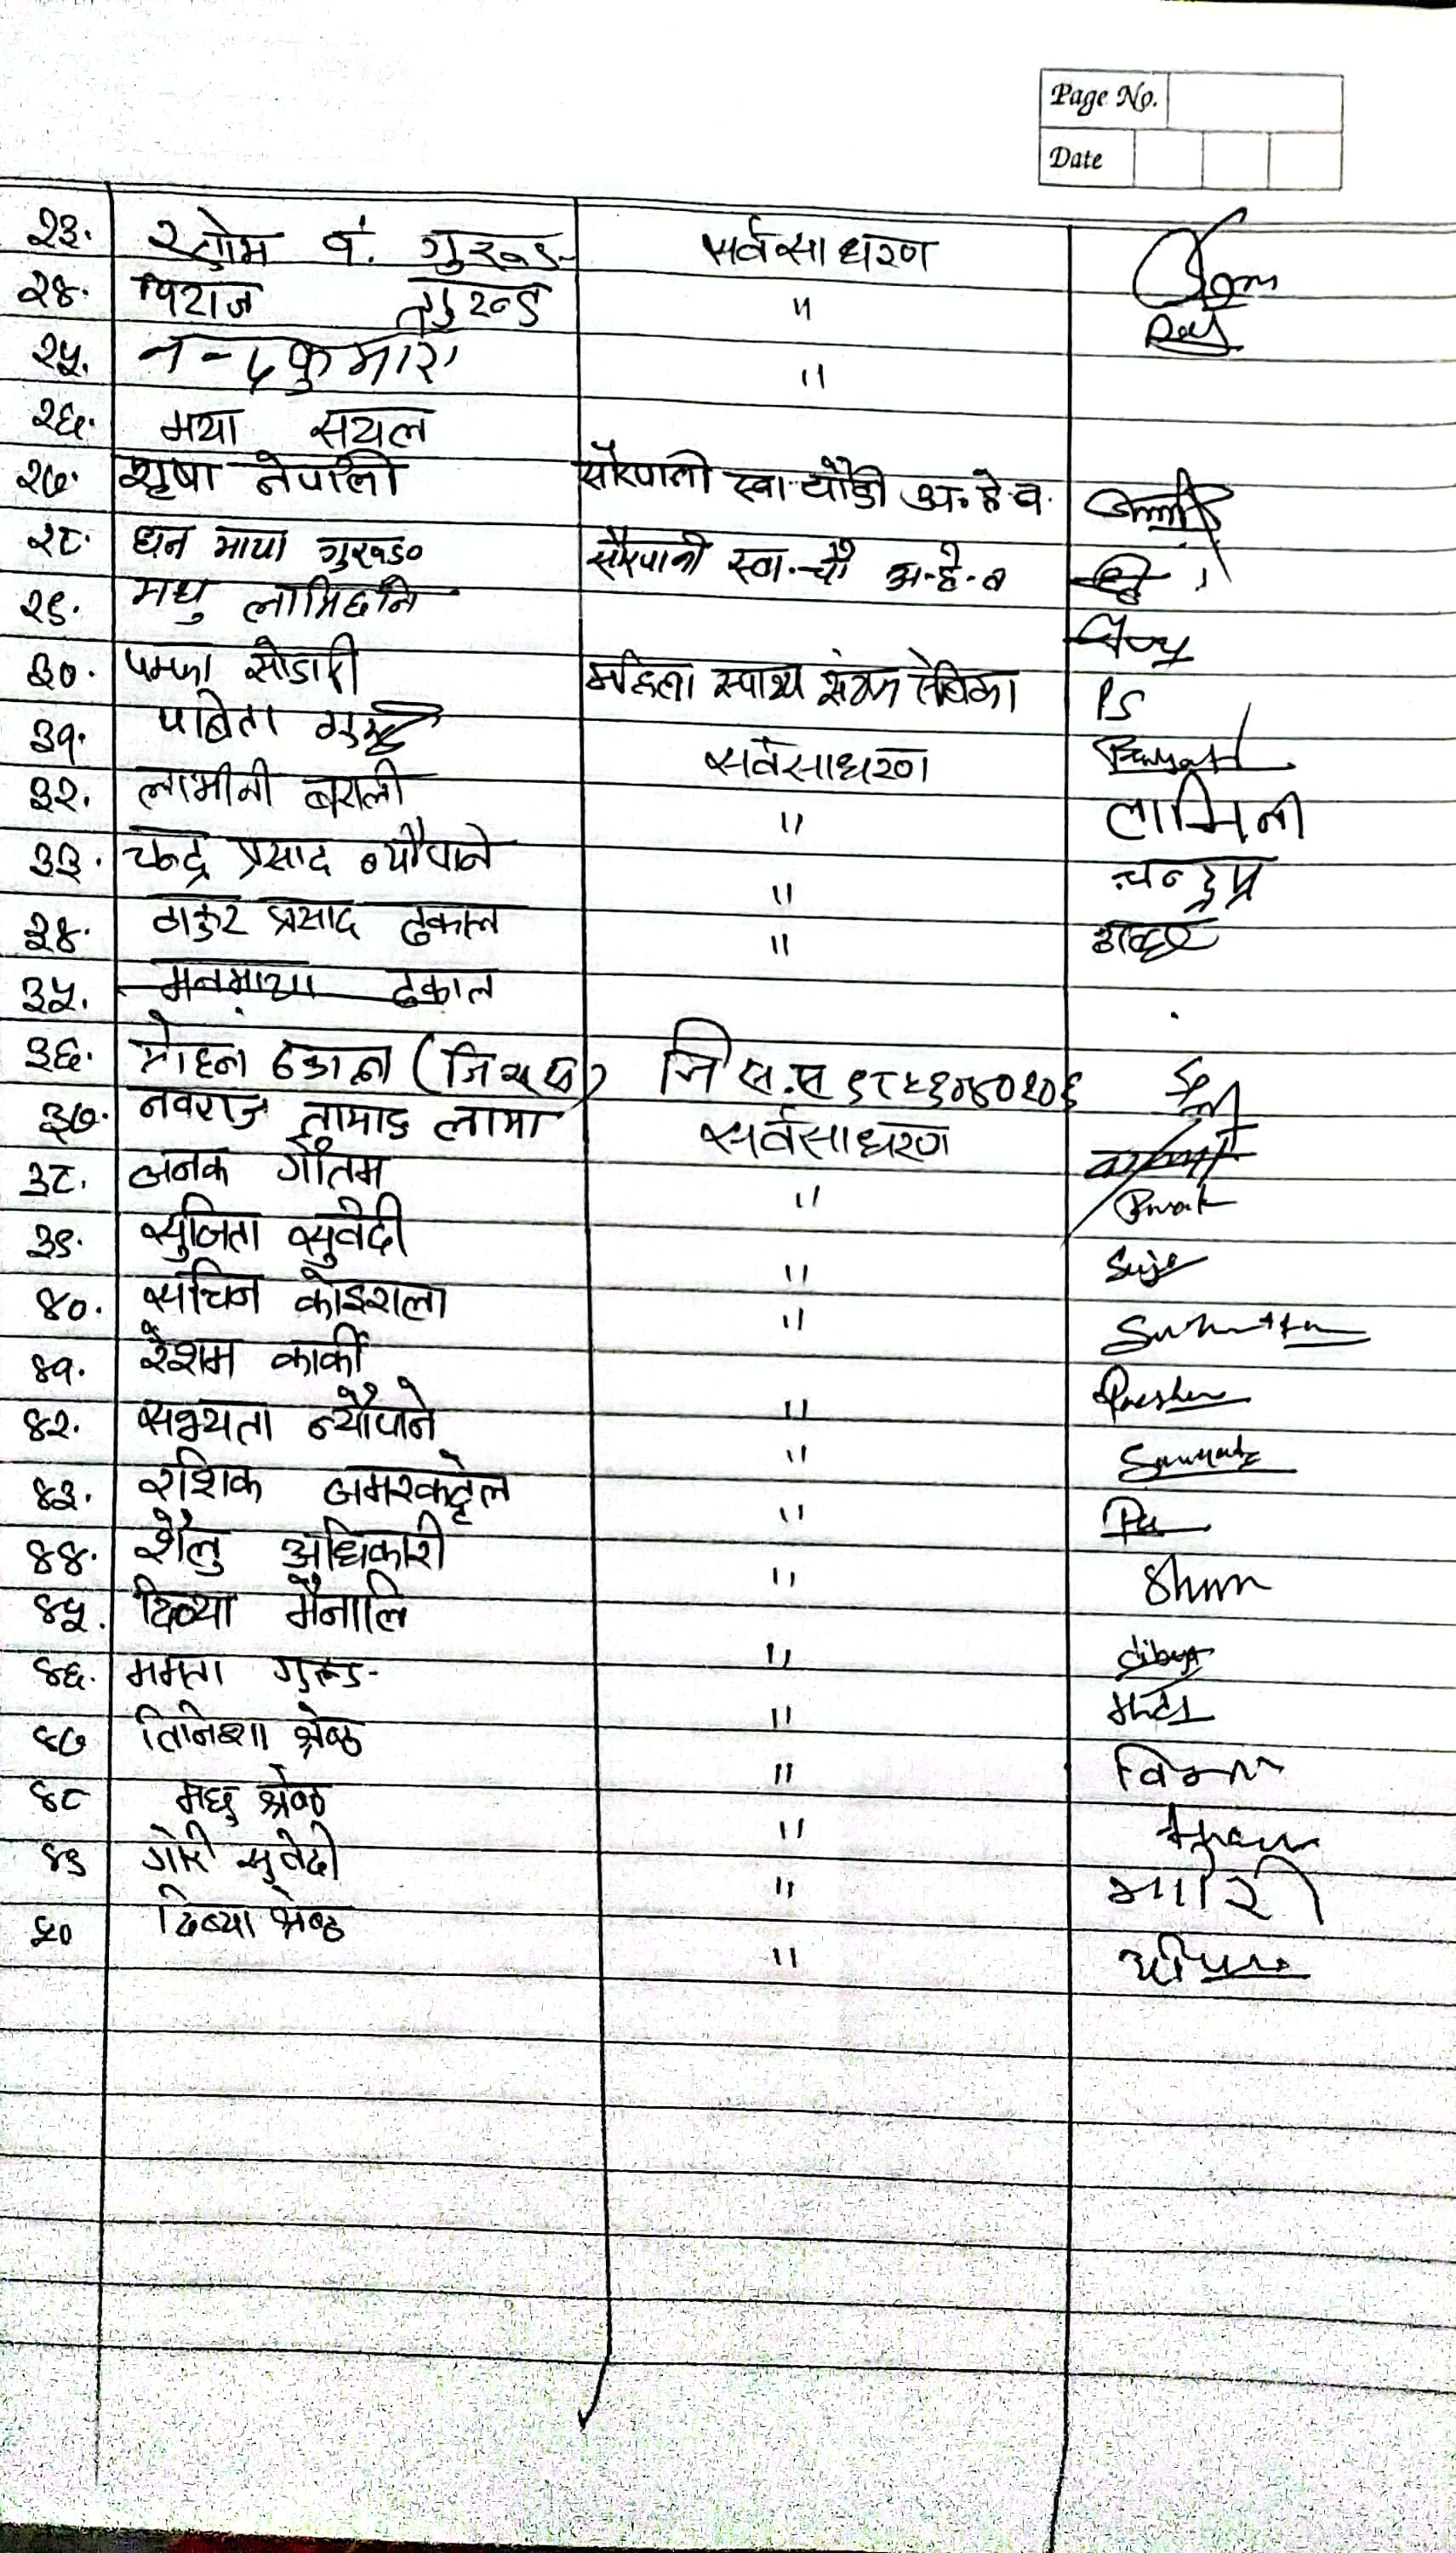 Page No.
Date
२३. ओम व. गुरुङ सर्वसाधरण
२४. पिराज गुरुन्ड " Raj
२५. नन्दकुमारी "
२६. मया सयल
२७. शृषा नेपाली सौरपानी स्वा. चौकी अ.हे.व.
२८. धन माया गुरुङ सौरपानी स्वा. चौ अ.हे.व
२९. मधु लामिछाने
३०. पम्फा सोडारी महिला स्वास्थ्य सेविका PS
३१. पबिता गुरुङ सर्वसाधरण
३२. लामीनी बराली " लामिनी
३३. चन्द्र प्रसाद न्यौपाने " चन्द्रप्र
३४. ठाकुर प्रसाद ढकाल "
३५. मनमाया ढकाल
३६. मोहन ढकाल (जि.स.स) जि स.स ९८५६०४०२०६
३७. नवराज तामाङ लामा सर्वसाधरण
३८. जनक गौतम "
३९. सुजिता सुवेदी " Suje
४०. सचिन कोइराला "
४१. रेशम कार्की "
४२. सभ्यता न्यौपाने "
४३. रशिक अमरकट्टेल "
४४. शैलु अधिकारी "
४५. दिव्या मैनालि " dibya
४६. ममता गुरुङ "
४७ तिनिशा श्रेष्ठ "
४८ मधु श्रेष्ठ "
४९ गोरी सुवेदी "
५० दिब्या श्रेष्ठ "